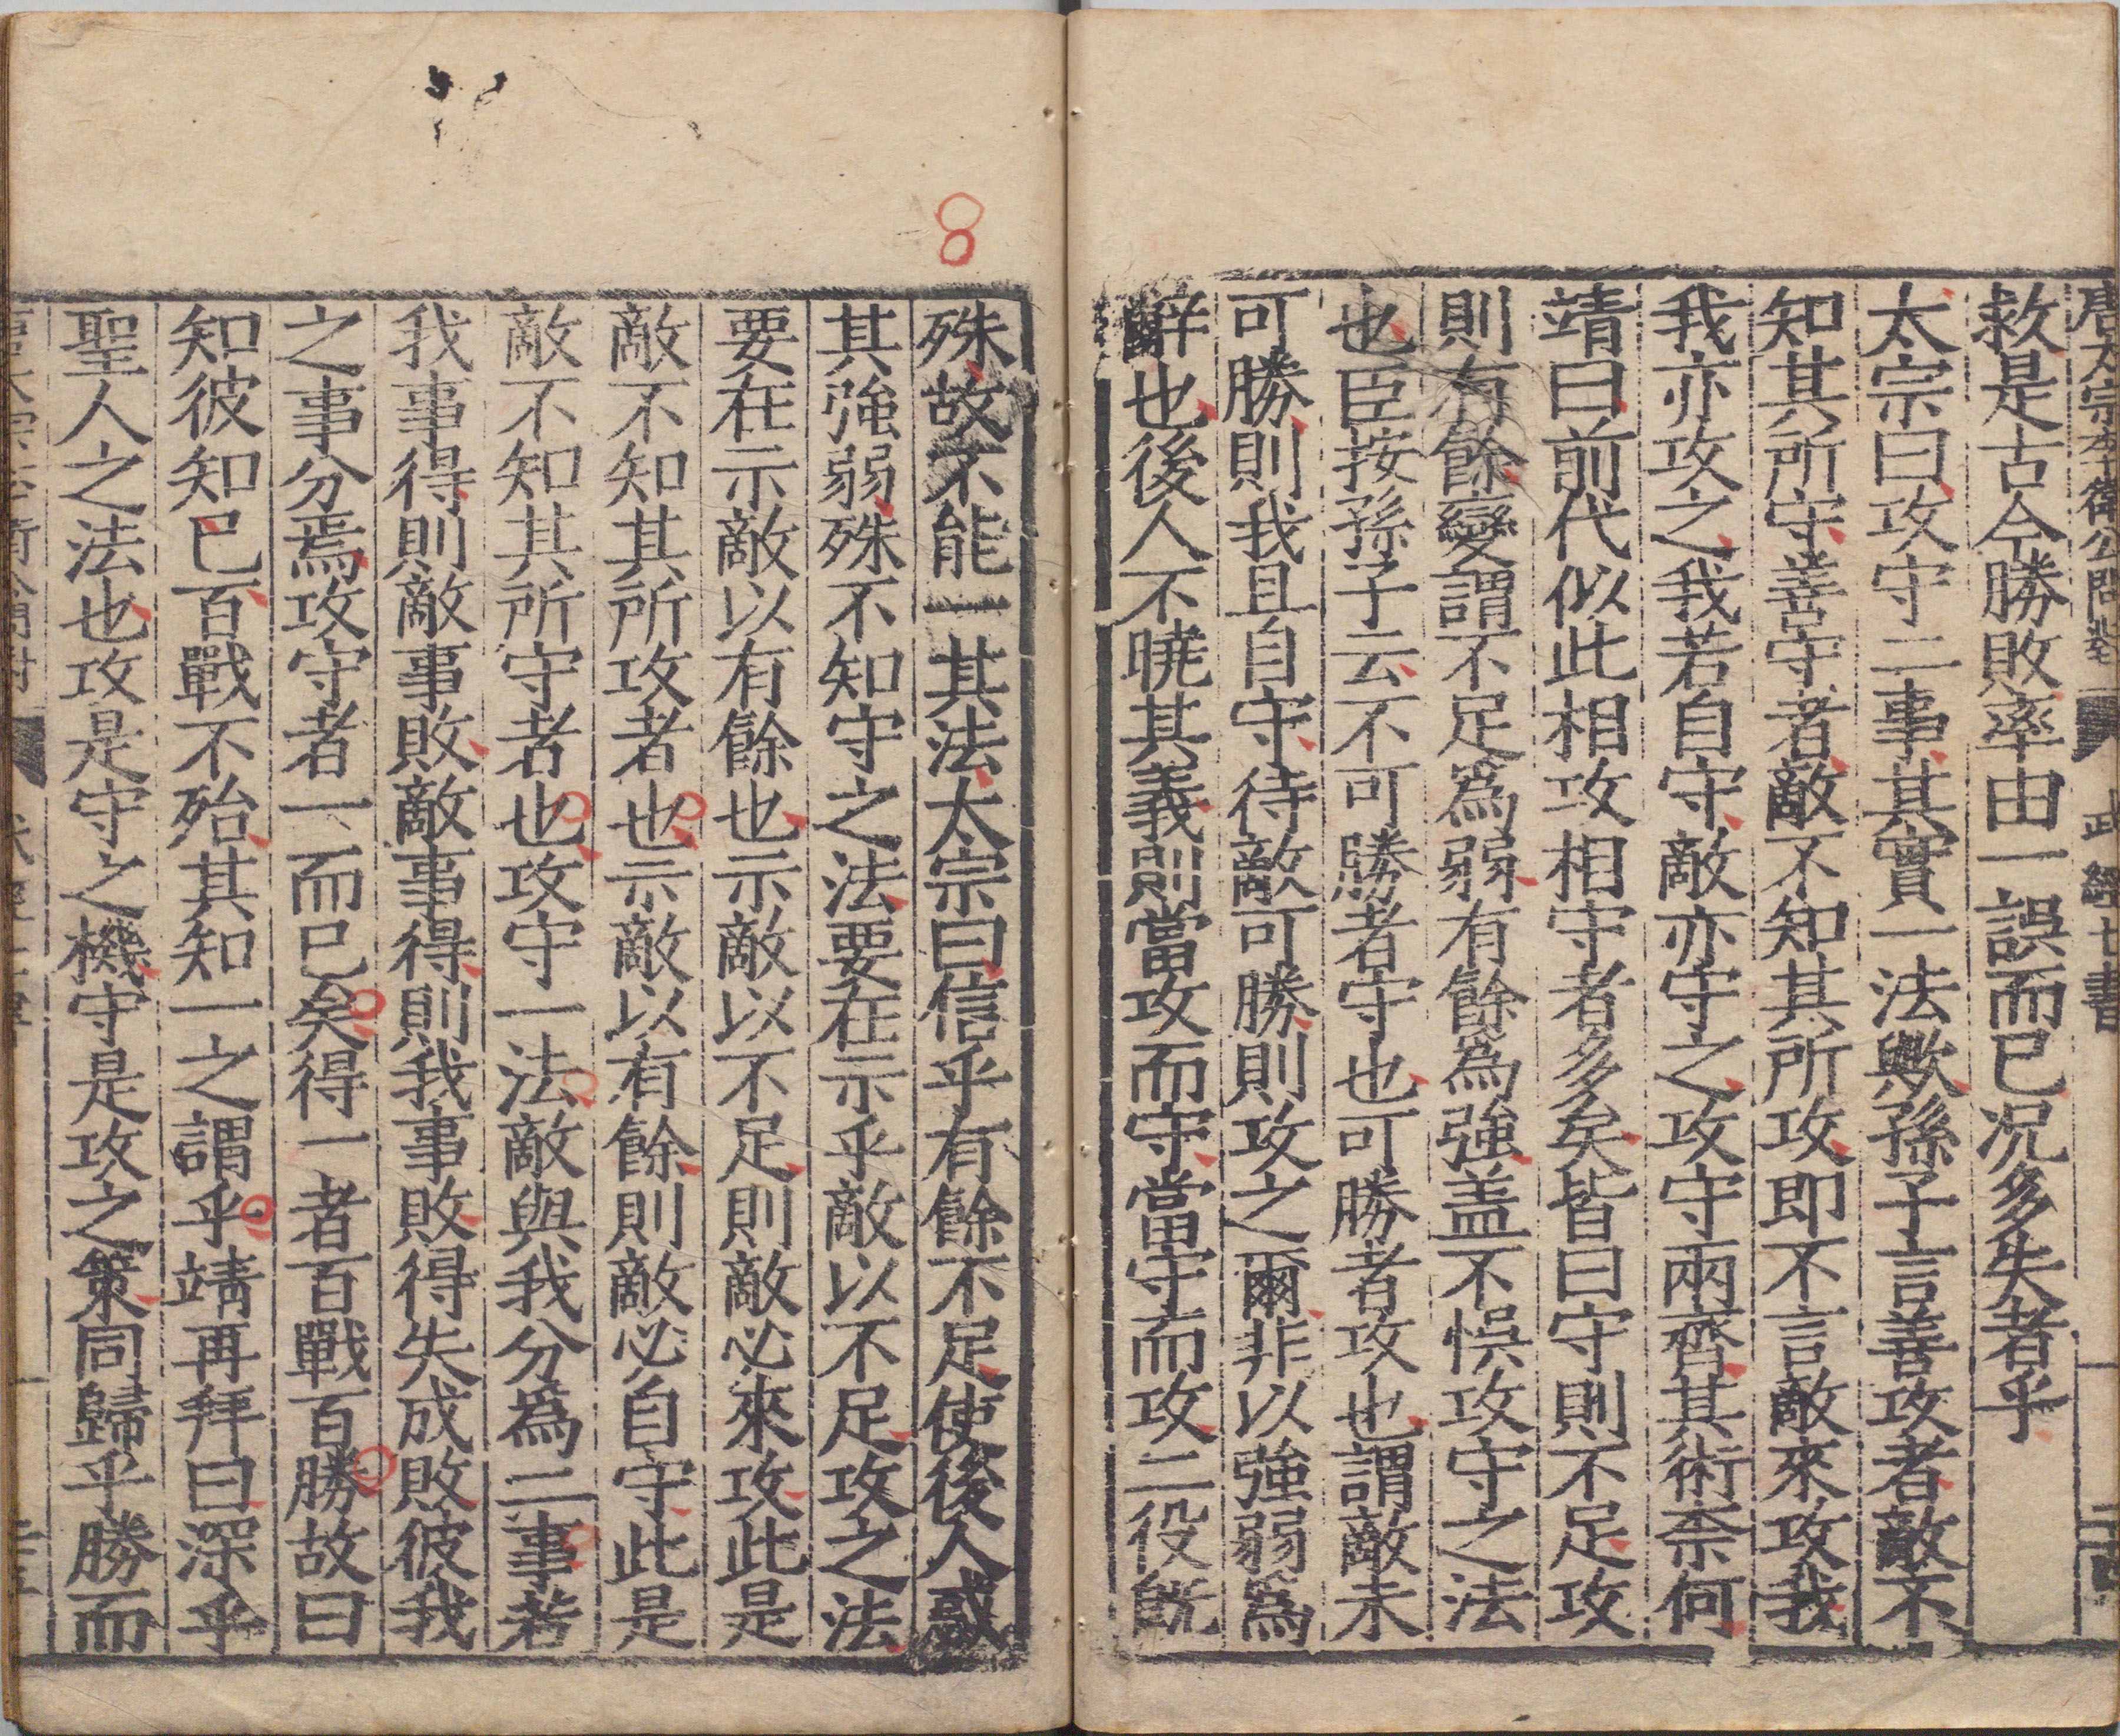 唐太宗李衛公問對 武經七書
救是古今勝敗率由一誤而已况多失者乎
太宗曰攻守二事其實一法歟孫子言善攻者敵不
知其所守善守者敵不知其所攻即不言敵來攻我
我亦攻之我若自守敵亦守之攻守兩齊其術柰何
靖曰前代似此相攻相守者多矣皆曰守則不足攻
則有餘變謂不足爲弱有餘爲強盖不悞攻守之法
也臣按孫子云不可勝者守也可勝者攻也謂敵未
可勝則我且自守待敵可勝則攻之爾非以強弱爲
辭也後人不曉其義則當攻而守當守而攻二役旣
殊故不能一其法太宗曰信乎有餘不足使後人惑
其強弱殊不知守之法要在示乎敵以不足攻之法
要在示敵以有餘也示敵以不足則敵必來攻此是
敵不知其所攻者也示敵以有餘則敵必自守此是
敵不知其所守者也攻守一法敵與我分爲二事若
我事得則敵事敗敵事得則我事敗得失成敗彼我
之事分焉攻守者一而已矣得一者百戰百勝故曰
知彼知已百戰不殆其知一之謂乎靖再拜曰深乎
聖人之法也攻是守之機守是攻之策同歸乎勝而
8